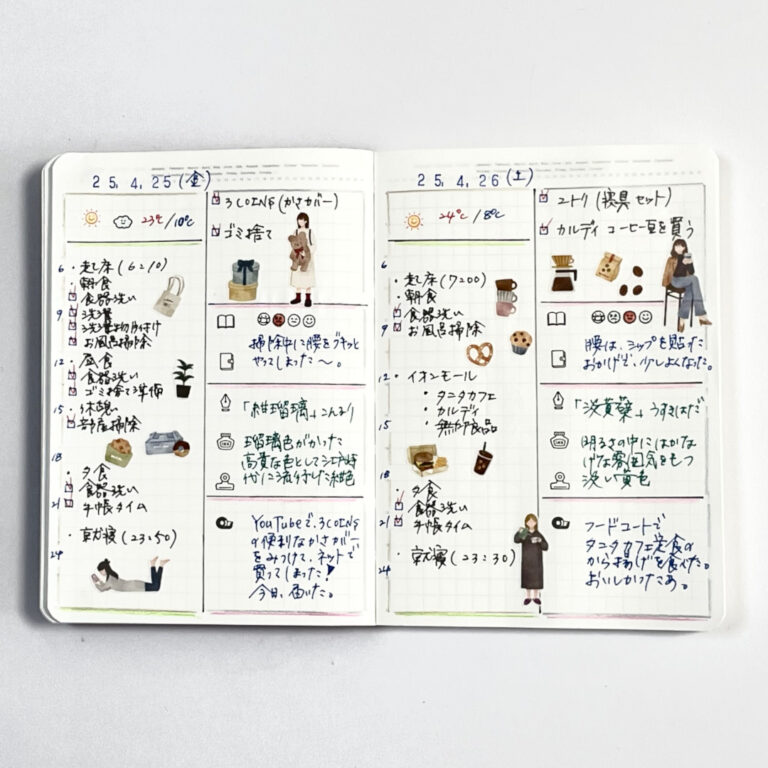 25.4.25(金)
23℃/10℃
6
・起床(6:10)
・朝食
食器洗い
9
洗濯
洗濯物片付け
お風呂掃除
12
・昼食
食器洗い
ゴミ捨て準備
15
・休憩
部屋掃除
18
・夕食
食器洗い
21
手帳タイム
・就寝(23:50)
24
3COINS(かさカバー)
ゴミ捨て
掃除中に腰をグキッと
やってしまった〜。
「紺瑠璃」こんるり
瑠璃色がかった
高貴な色として江戸時
代に流行した紺色
YouTubeで、3COINS
の便利なかさカバー
をみつけて、ネットで
買ってしまった!
今日、届いた。
25.4.26(土)
24℃/8℃
6
・起床(7:00)
・朝食
食器洗い
9
お風呂掃除
12
・イオンモール
・タニタカフェ
・カルディ
15
・無印良品
18
・夕食
食器洗い
21
手帳タイム
・就寝(23:30)
24
ニトリ(寝具セット)
カルディ コーヒー豆を買う
腰は、シップを貼った
おかげで、少しよくなった。
「淡黄蘗」うすきはだ
明るさの中にはかな
げな雰囲気をもつ
淡い黄色
フードコートで
タニタカフェ定食の
からあげを食べた。
おいしかったなあ。